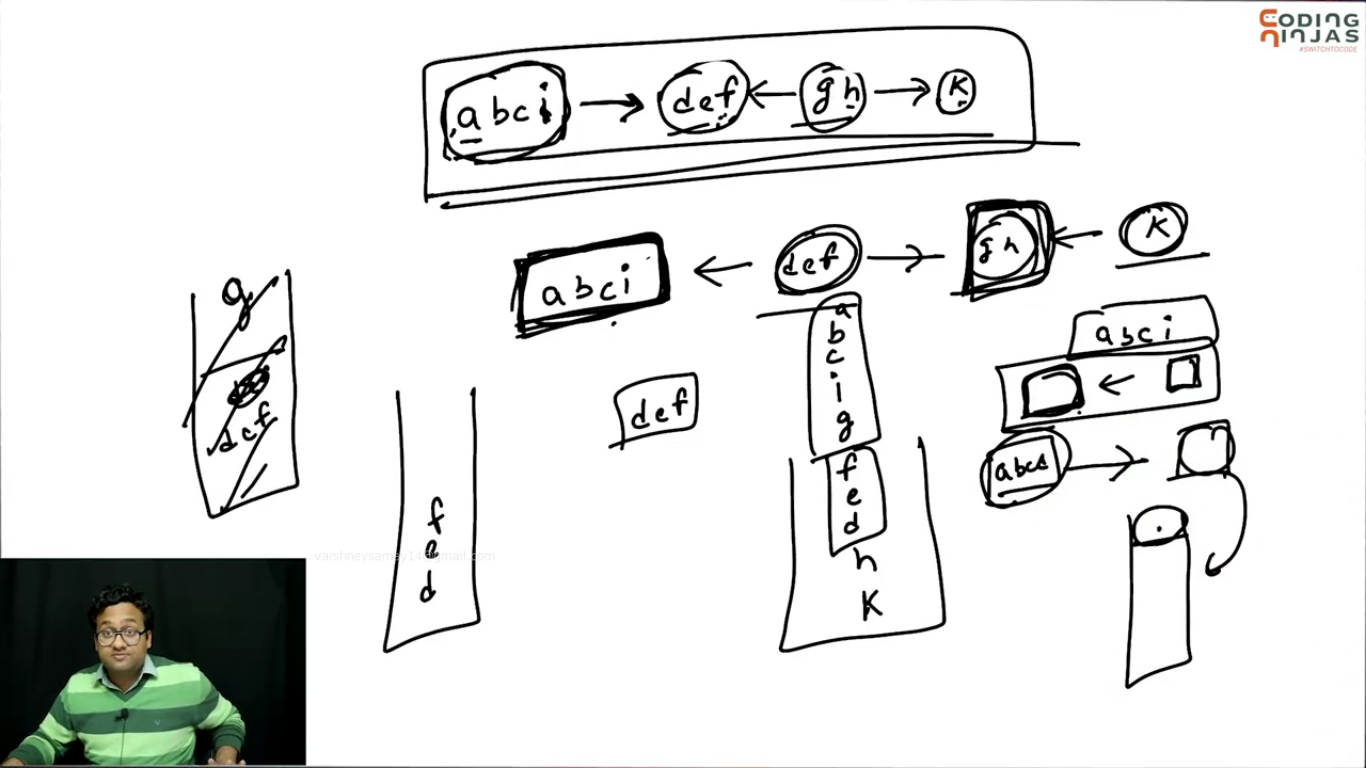 CODING
NINJAS
#SWITCHTOCODE
abci → def ← gh → K
abci ← def → gh ← K
g
def
f
e
d
def
a
b
c
i
g
f
e
d
h
K
abci
←
abcd →
varshneysamay14@gmail.com